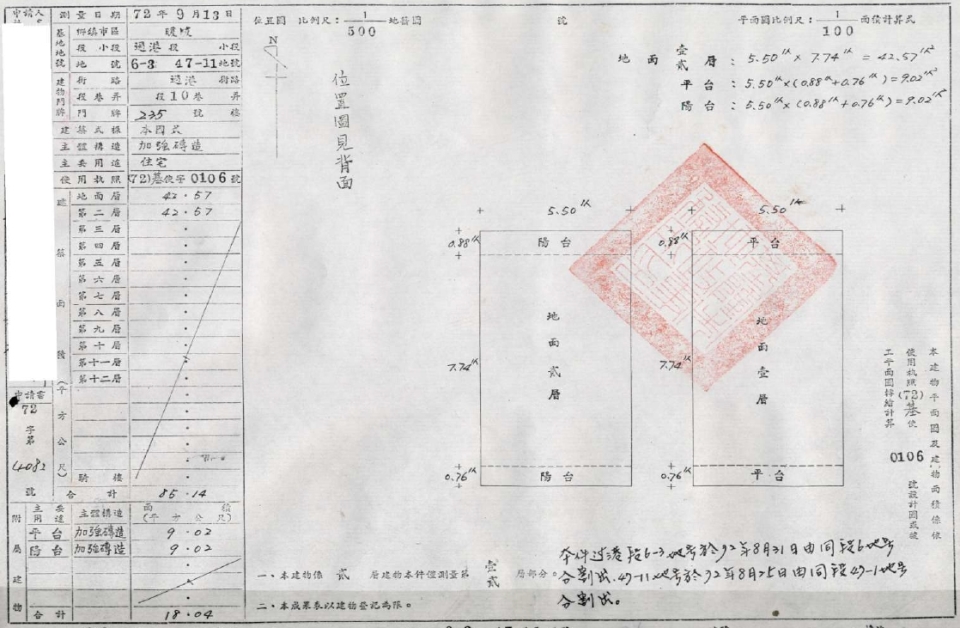 申請人
測量日期 72年9月13日
位置圖 比例尺：1/500 地籍圖 號
平面圖比例尺：1/100 面積計算式
基地地號 鄉鎮市區 暖暖
段 小段 過港段 小段
地號 6-3 47-11地號
建物門牌 街路 過港 街路
段巷弄 段10巷 弄
門牌 235 號 樓
建築式樣 本國式
主體構造 加強磚造
主要用途 住宅
使用執照 (72)基使字0106號
建築面積(平方公尺)
地面層 42.57
第二層 42.57
第三層
第四層
第五層
第六層
第七層
第八層
第九層
第十層
第十一層
第十二層
騎樓
合計 85.14
申請書
72
字第
4082
號
附屬建物
主要用途 主體構造 面積(平方公尺)
平台 加強磚造 9.02
陽台 加強磚造 9.02
合計 18.04
位置圖見背面
N
地面壹貳層：5.50 × 7.74 = 42.57
平台：5.50×(0.88+0.76)=9.02
陽台：5.50×(0.88+0.76)=9.02
5.50
0.88 陽台
7.74 地面貳層
0.76 陽台
5.50
0.88 平台
7.74 地面壹層
0.76 平台
本建物平面圖及建物面積係依
使用執照(72)基使0106號設計圖或竣
工平面圖轉繪計算
一、本建物係貳層建物本件僅測量第壹貳層部分。
二、本成果表以建物登記為限。
本件過港段6-3地號於72年8月31日由同段6地號
分割出。47-11地號於72年8月25日由同段47-1地號
分割出。